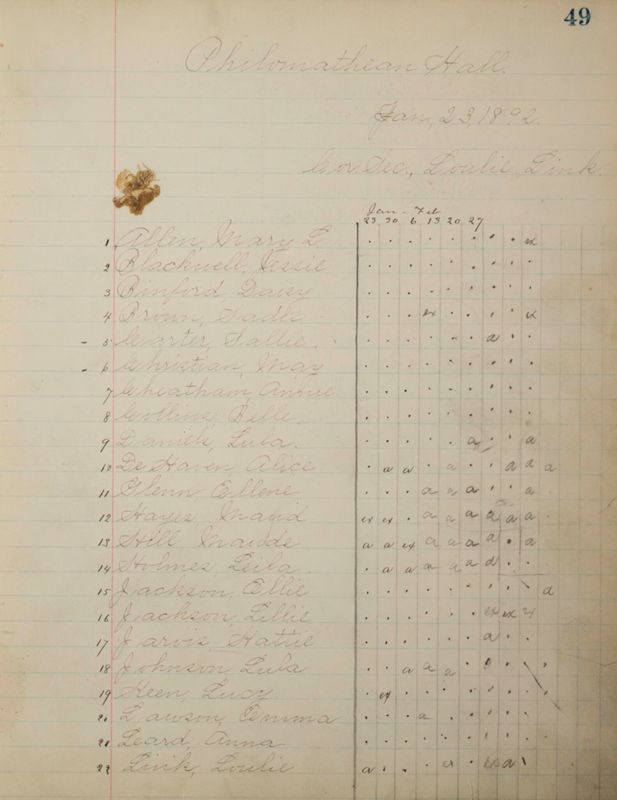 49
Philomathean Hall.
Jan. 23, 1892.
Cor. Sec., Loulie Link.
Jan - Feb
23 30 6 13 20 27
1 Allen, Mary L. . . . . . . . . ex
2 Blackwell, Jessie . . . . . . . . .
3 Binford, Daisy . . . . . . . . .
4 Brown, Sadie . . . ex . . . . ex
- 5 Carter, Sallie. . . . . . . a . .
- 6 Christian, May . . . . . . . . .
7 Cheatham, Annie . . . . . . . . .
8 Collins, Belle. . . . . . . . . .
9 Daniels, Lula. . . . . . a . . a
10 De Haven, Alice . a a . a . . a a a
11 Glenn, Ellene . . . a a a . . a
12 Hayes, Maud ex ex . a a a a a a
13 Hill, Maude a a ex a a a a . a
14 Holmes, Leila. . a a a a a d . .
15 Jackson, Ellie . . . . . . . . . a
16 Jackson, Lillie . . . . . . ex ex
17 Jarvis, Hattie . . . . . . a . .
18 Johnson, Lula . . a a a . . . .
19 Keen, Lucy . ex . . . . . . .
20 Lawson, Emma . . . a . . . . .
21 Leard, Anna . . . . . . . . .
22 Link, Loulie a . . . ex . ex a